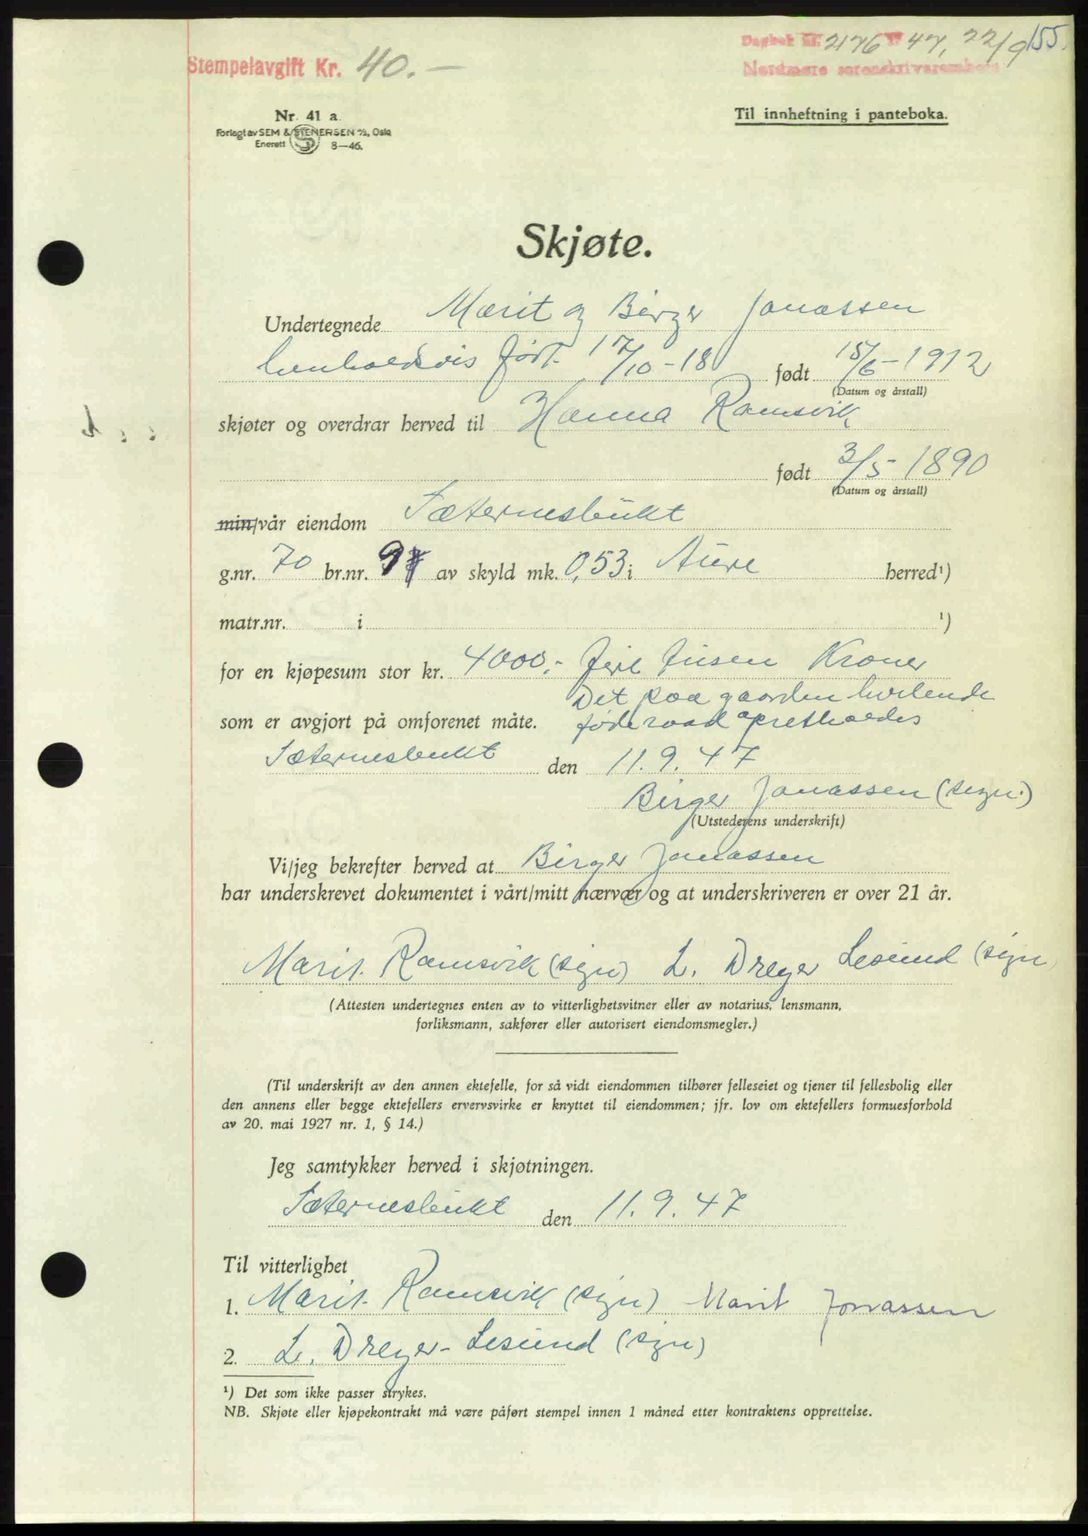 Stempelavgift Kr. 40.-
Dagbok nr. 2176 47, 22/9 155.
Nordmøre sorenskriverembete
Nr. 41 a
Forlagt av SEM & STENERSEN A/S, Oslo
Enerett 8—46.
Til innheftning i panteboka.
Skjøte.
Undertegnede Marit og Birger Jonassen
henholdsvis født 17/10-18 født 15/6-1912
(Datum og årstall)
skjøter og overdrar herved til Hanna Ramsvik
født 3/5-1890
(Datum og årstall)
min/vår eiendom Sæternesbukt
g.nr. 70 br.nr. 9 av skyld mk. 0,53 i Aure herred¹)
matr.nr. i ¹)
for en kjøpesum stor kr. 4000,- fire tusen Kroner
Det paa gaarden hvilende
som er avgjort på omforenet måte. føderaad opretholdes
Sæternesbukt den 11.9.47
Birger Jonassen (sign.)
(Utstederens underskrift)
Vi/jeg bekrefter herved at Birger Jonassen
har underskrevet dokumentet i vårt/mitt nærvær og at underskriveren er over 21 år.
Marit Ramsvik (sign) L. Dreyer Lesund (sign
(Attesten undertegnes enten av to vitterlighetsvitner eller av notarius, lensmann,
forliksmann, sakfører eller autorisert eiendomsmegler.)
(Til underskrift av den annen ektefelle, for så vidt eiendommen tilhører felleseiet og tjener til fellesbolig eller
den annens eller begge ektefellers ervervsvirke er knyttet til eiendommen; jfr. lov om ektefellers formuesforhold
av 20. mai 1927 nr. 1, § 14.)
Jeg samtykker herved i skjøtningen.
Sæternesbukt den 11.9.47
Til vitterlighet
1. Marit Ramsvik (sign) Marit Jonassen
2. L. Dreyer-Lesund (sign)
¹) Det som ikke passer strykes.
NB. Skjøte eller kjøpekontrakt må være påført stempel innen 1 måned etter kontraktens opprettelse.